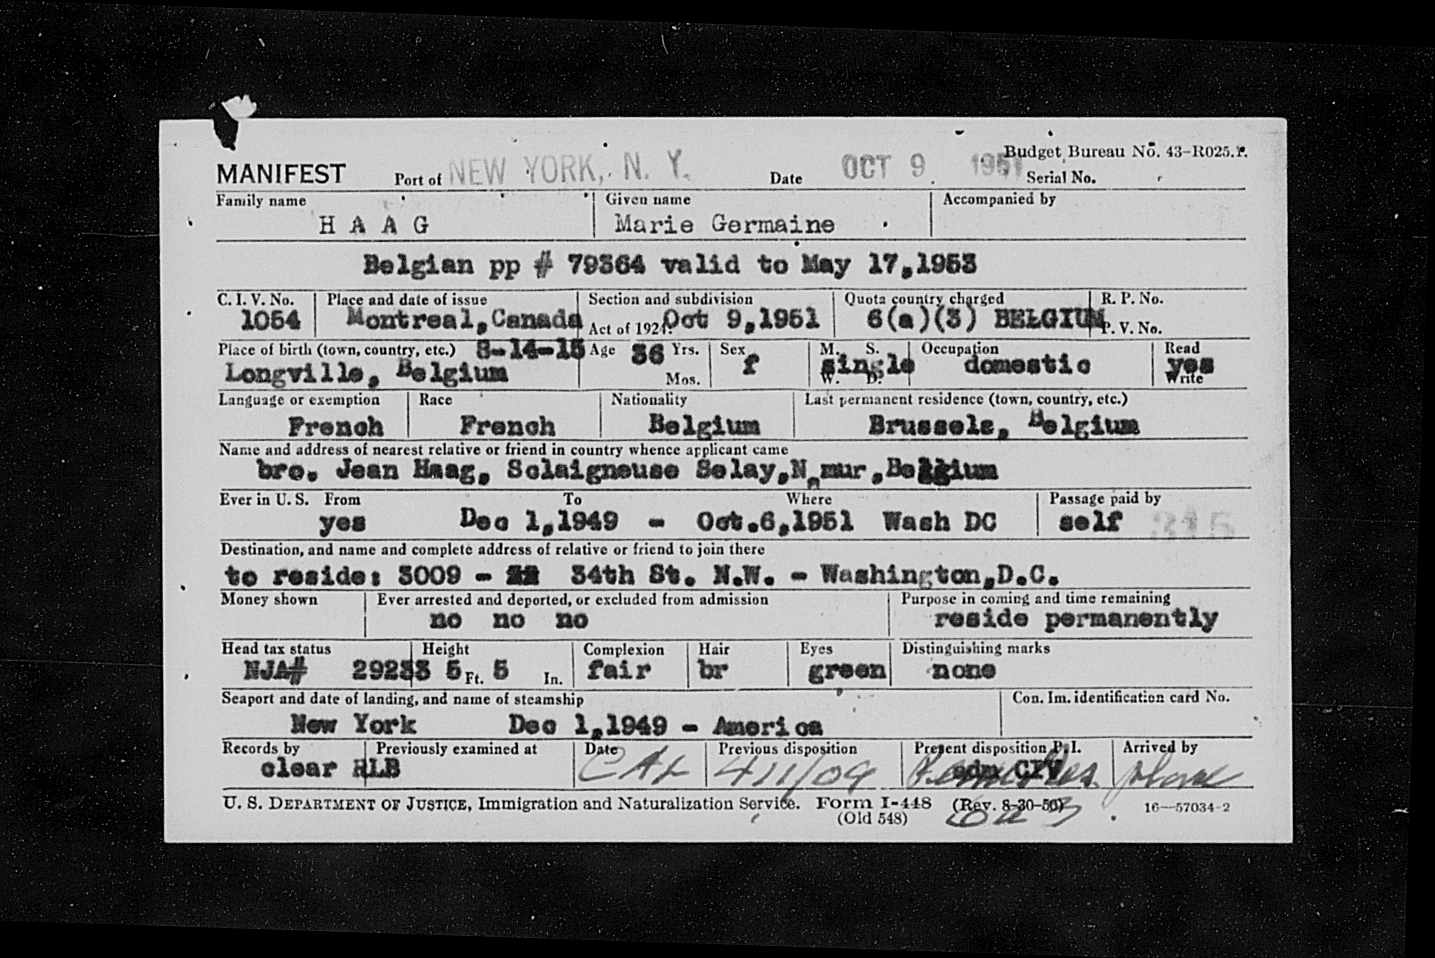 Budget Bureau No. 43-R025.1.
MANIFEST Port of NEW YORK, N. Y. Date OCT 9 1951 Serial No.
Family name Given name Accompanied by
H A A G Marie Germaine
Belgian pp # 79364 valid to May 17,1953
C. I. V. No. Place and date of issue Section and subdivision Quota country charged R. P. No.
1054 Montreal,Canada Act of 1924: Oct 9,1951 6(a)(3) BELGIUM P. V. No.
Place of birth (town, country, etc.) 8-14-15 Age 36 Yrs. Sex M. S. Occupation Read
Longville, Belgium Mos. f single W. D. domestic yes Write
Language or exemption Race Nationality Last permanent residence (town, country, etc.)
French French Belgium Brussels, Belgium
Name and address of nearest relative or friend in country whence applicant came
bro. Jean Haag, Solaigneuse Selay,Namur,Belgium
Ever in U. S. From To Where Passage paid by
yes Dec 1,1949 - Oct.6,1951 Wash DC self 315
Destination, and name and complete address of relative or friend to join there
to reside: 3009 - 34th St. N.W. - Washington,D.C.
Money shown Ever arrested and deported, or excluded from admission Purpose in coming and time remaining
no no no reside permanently
Head tax status Height Complexion Hair Eyes Distinguishing marks
NJA# 29233 5 Ft. 5 In. fair br green none
Seaport and date of landing, and name of steamship Con. Im. identification card No.
New York Dec 1,1949 - America
Records by Previously examined at Date Previous disposition Present disposition P. I. Arrived by
clear RLB CAL 411/09 adm CIV plane
U. S. DEPARTMENT OF JUSTICE, Immigration and Naturalization Service. Form I-448 (Rev. 8-30-50) 16—57034-2
(Old 548)